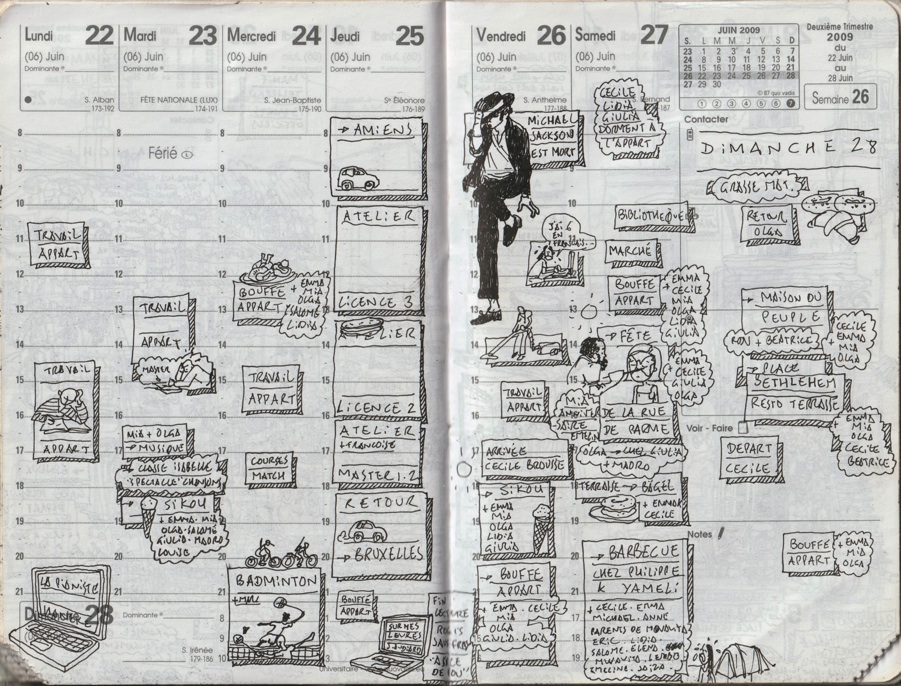 Lundi 22
(06) Juin
Dominante
S. Alban
173-192
8
9
10
11
TRAVAIL
APPART
12
13
14
15
TRAVAIL
APPART
16
17
18
19
20
21
LA PIANISTE
Dimanche 28
Dominante
S. Irénée
179-186
Mardi 23
(06) Juin
Dominante
FÊTE NATIONALE (LUX)
174-191
Férié
TRAVAIL
APPART
MIA + OLGA
→ MUSIQUE
CLASSE ISABELLE
SPECTACLE
→ SIKOU
+ EMMA - MIA
OLGA - SALOMÉ
GIULIA - MADRO
LOUISE
Mercredi 24
(06) Juin
Dominante
S. Jean-Baptiste
175-190
BOUFFE
APPART
+ EMMA
MIA
OLGA
SALOMÉ
LIDIA
TRAVAIL
APPART
COURSES
MATCH
BADMINTON
Jeudi 25
(06) Juin
Dominante
Ste Eléonore
176-189
→ AMIENS
ATELIER
LICENCE 3
LICENCE 2
ATELIER
+ FRANCOISE
MASTER 1.2
RETOUR
→ BRUXELLES
BOUFFE
APPART
SUR MES
LEVRES
Vendredi 26
(06) Juin
Dominante
S. Anthelme
177-188
MICHAEL
JACKSON
EST MORT
TRAVAIL
APPART
ARRIVÉE
CECILE BROUISE
→ SIKOU
+ EMMA
MIA
OLGA
LIDIA
GIULIA
→ BOUFFE
APPART
+ EMMA - CECILE
MIA
OLGA
GIULIA - LIDIA
Samedi 27
(06) Juin
Dominante
CECILE
LIDIA
GIULIA
DORMENT A
L'APPART
BIBLIOTHEQUE
MARCHÉ
BOUFFE
APPART
+ EMMA
CECILE
MIA
OLGA
LIDIA
GIULIA
→ FÊTE
+ EMMA
CECILE
GIULIA
OLGA
DE LA RUE
DE PARME
OLGA → CHEZ GIULIA
+ MADRO
TERRASSE → BAGEL
+ EMMA
CECILE
→ BARBECUE
CHEZ PHILIPPE
& YAMELI
+ CECILE - EMMA
MICHAEL - ANNE
ERIC - LIDIA
JUIN 2009
S. L M M J V S D
23 1 2 3 4 5 6 7
24 8 9 10 11 12 13 14
25 15 16 17 18 19 20 21
26 22 23 24 25 26 27 28
27 29 30
© BT quo vadis
1 2 3 4 5 6 7
Deuxième Trimestre
2009
du
22 Juin
au
28 Juin
Semaine 26
Contacter
DIMANCHE 28
GRASSE MAT.
RETOUR
OLGA
→ MAISON DU
PEUPLE
RON + BEATRICE
CECILE
+ EMMA
MIA
OLGA
→ PLACE
BETHLEHEM
RESTO TERRASSE
Voir - Faire
+ EMMA
MIA
OLGA
CECILE
BEATRICE
DEPART
CECILE
Notes
BOUFFE
APPART
+ EMMA
MIA
OLGA